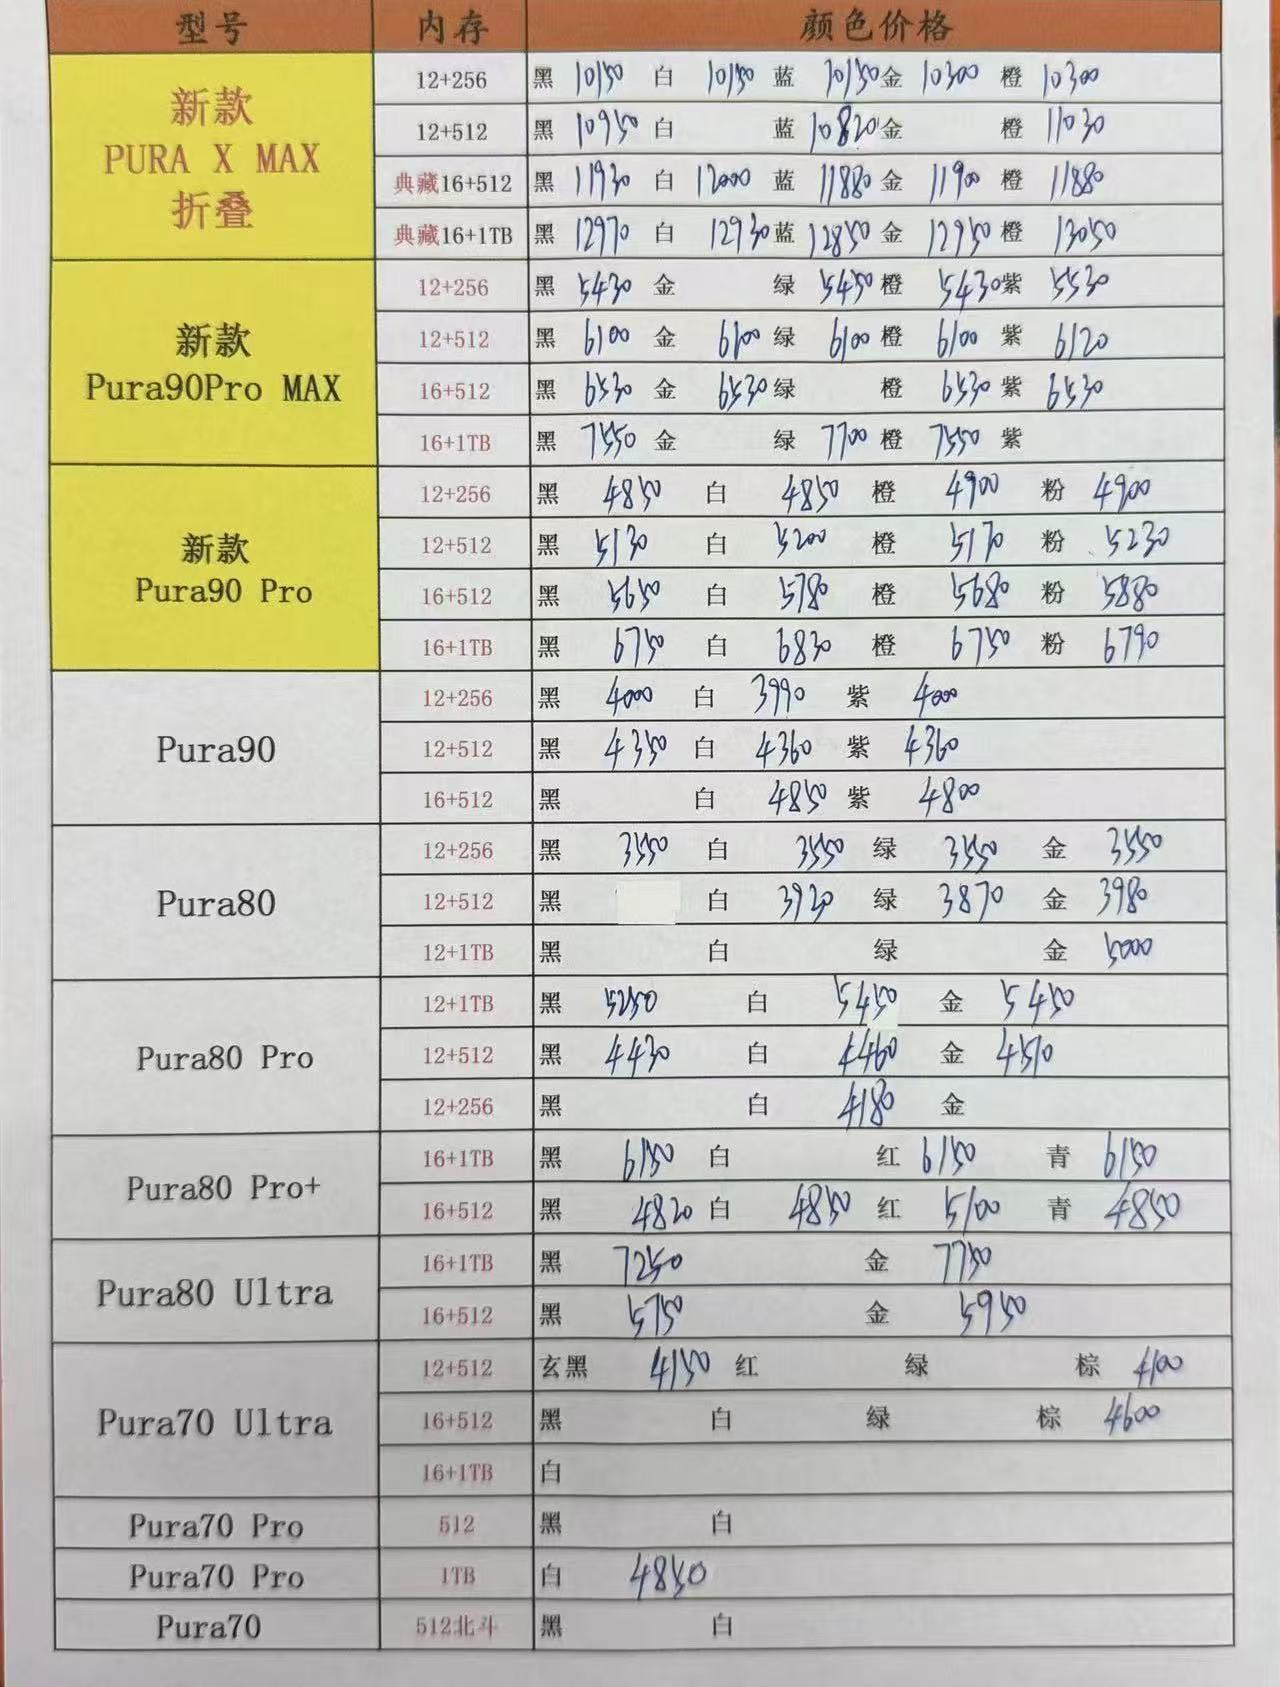 型号 内存 颜色价格
新款 PURA X MAX 折叠
12+256 黑 10150 白 10150 蓝 10150 金 10300 橙 10300
12+512 黑 10950 白 蓝 10820 金 橙 11030
典藏16+512 黑 11930 白 12000 蓝 11880 金 11900 橙 11880
典藏16+1TB 黑 12970 白 12930 蓝 12850 金 12950 橙 13050
新款 Pura90Pro MAX
12+256 黑 5430 金 绿 5450 橙 5430 紫 5530
12+512 黑 6100 金 6100 绿 6100 橙 6100 紫 6120
16+512 黑 6530 金 6530 绿 橙 6530 紫 6530
16+1TB 黑 7550 金 绿 7700 橙 7550 紫
新款 Pura90 Pro
12+256 黑 4850 白 4850 橙 4900 粉 4900
12+512 黑 5130 白 5200 橙 5170 粉 5230
16+512 黑 5650 白 5780 橙 5680 粉 5880
16+1TB 黑 6750 白 6830 橙 6750 粉 6790
Pura90
12+256 黑 4000 白 3990 紫 4000
12+512 黑 4350 白 4360 紫 4360
16+512 黑 白 4850 紫 4800
Pura80
12+256 黑 3550 白 3550 绿 3550 金 3550
12+512 黑 白 3920 绿 3870 金 3980
12+1TB 黑 白 绿 金 5000
Pura80 Pro
12+1TB 黑 5250 白 5450 金 5450
12+512 黑 4430 白 4460 金 4510
12+256 黑 白 4180 金
Pura80 Pro+
16+1TB 黑 6150 白 红 6150 青 6150
16+512 黑 4820 白 4850 红 5100 青 4850
Pura80 Ultra
16+1TB 黑 7250 金 7750
16+512 黑 5750 金 5950
Pura70 Ultra
12+512 玄黑 4150 红 绿 棕 4100
16+512 黑 白 绿 棕 4600
16+1TB 白
Pura70 Pro 512 黑 白
Pura70 Pro 1TB 白 4850
Pura70 512北斗 黑 白